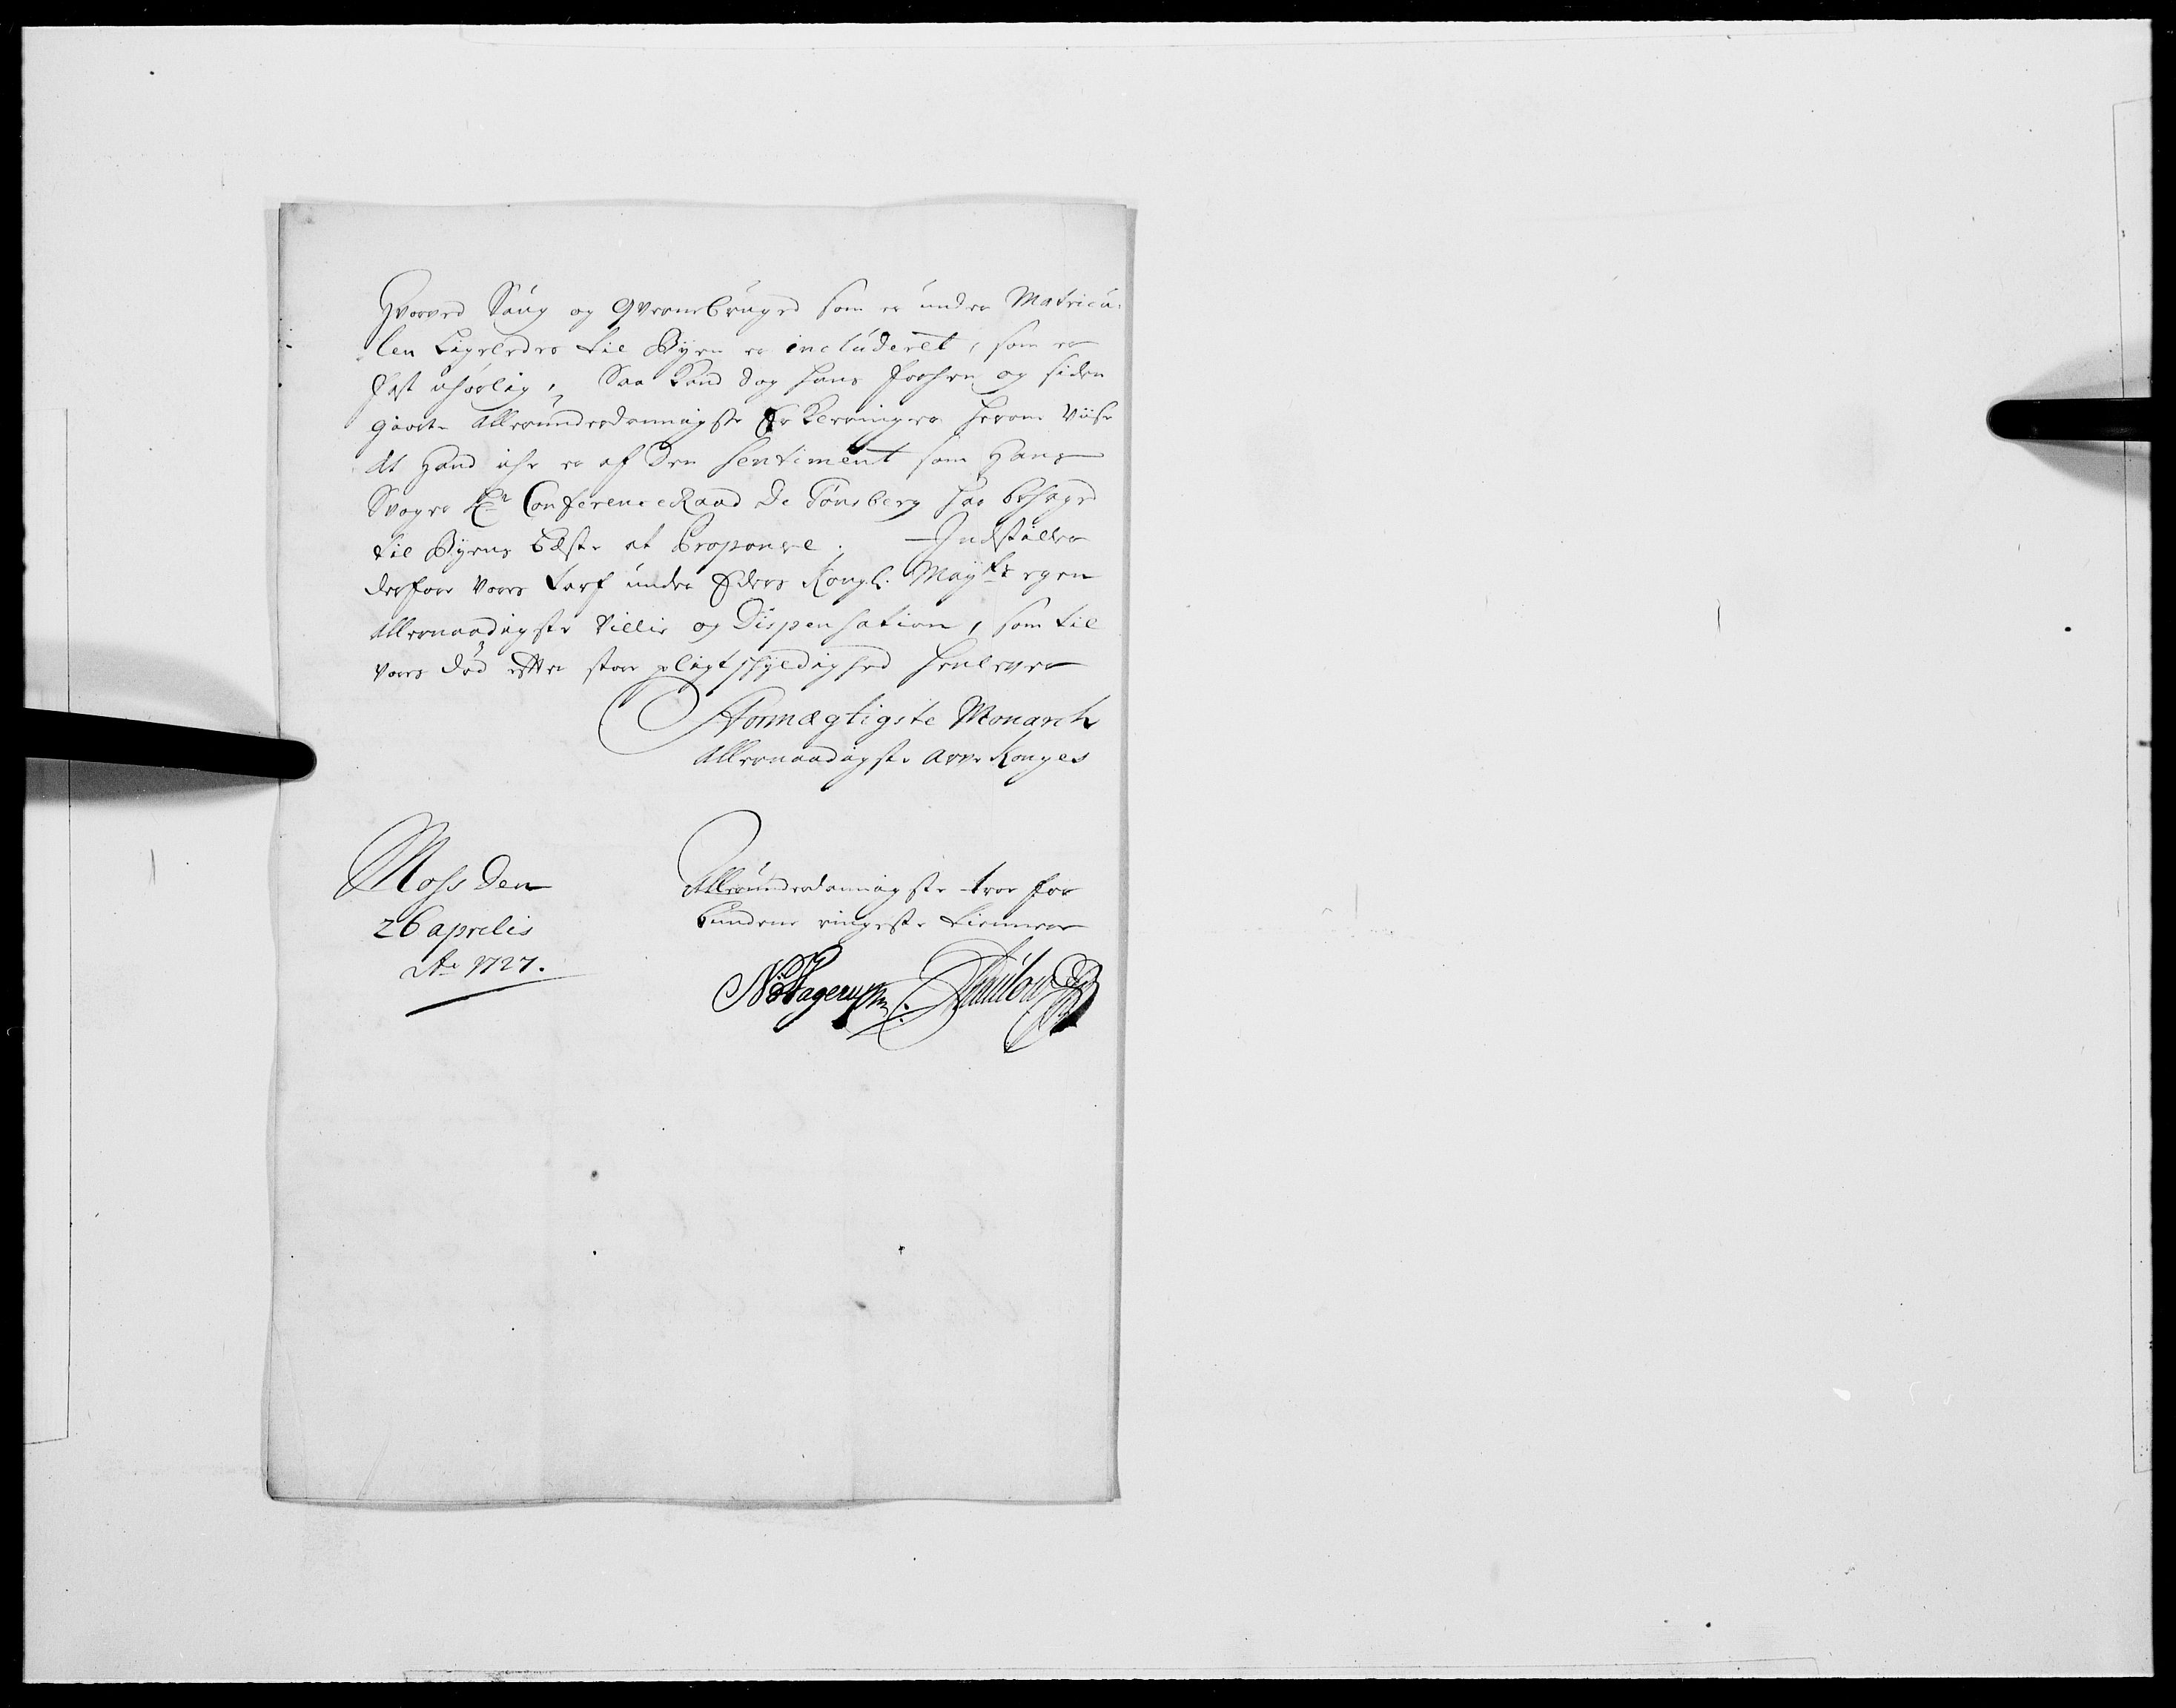 Hvorved Saug og Qvernebruged som er under Matricu-
len Ligeledes til Byen er includeret, som er
fast uhørlig, Saa kand dog hans forhen og siden
giorte Allerunderdannigste Erklerninger herom Viise
At Hand iche er af den Sentiment som Hans
Svoger Hr ConferenceRaad De Tønsberg har behaged
til Byens beste at Proponere. Indstiller
derfore voris tarf under Eders Kongl: Mayts egen
Allernaadigste Villie og Dispensation, som til
voris død efter stor pligtskyldighed henlever
Stormægtigste Monarch
Allernaadigste Arve Konges
Moss Den
26 aprilis
Ao 1727.
Allerunderdannigste troe for
bundene ringeste tiennere
N. Hagerup